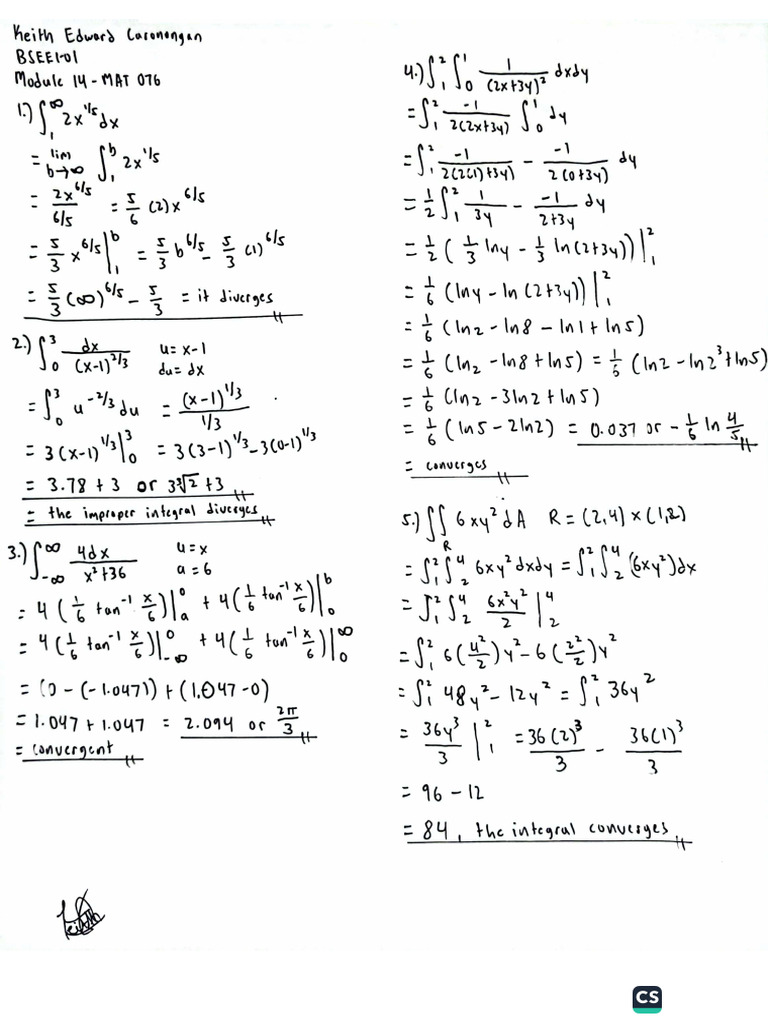 Keith Edward Caronongan
BSEE1-01
Module 14 - MAT 076
1.) ∫₁^∞ 2x^(1/5) dx
= lim b→∞ ∫₁^b 2x^(1/5)
= 2x^(6/5) / (6/5) = 5/6 (2) x^(6/5)
= 5/3 x^(6/5) |₁^b = 5/3 b^(6/5) - 5/3 (1)^(6/5)
= 5/3 (∞)^(6/5) - 5/3 = it diverges
2.) ∫₀^3 dx / (x-1)^(2/3) u = x-1
du = dx
= ∫₀^3 u^(-2/3) du = (x-1)^(1/3) / (1/3)
= 3(x-1)^(1/3) |₀^3 = 3(3-1)^(1/3) - 3(0-1)^(1/3)
= 3.78 + 3 or 3∛2 + 3
= the improper integral diverges
3.) ∫_(-∞)^∞ 4dx / (x²+36) u = x
a = 6
= 4(1/6 tan⁻¹ x/6) |_a^0 + 4(1/6 tan⁻¹ x/6) |₀^b
= 4(1/6 tan⁻¹ x/6) |_(-∞)^0 + 4(1/6 tan⁻¹ x/6) |₀^∞
= (0 - (-1.047)) + (1.047 - 0)
= 1.047 + 1.047 = 2.094 or 2π/3
= convergent
4.) ∫₁^2 ∫₀^1 1 / (2x+3y)² dxdy
= ∫₁^2 -1 / 2(2x+3y) ∫₀^1 dy
= ∫₁^2 -1 / 2(2(1)+3y) - -1 / 2(0+3y) dy
= 1/2 ∫₁^2 1/3y - -1 / 2+3y dy
= 1/2 (1/3 lny - 1/3 ln(2+3y)) |₁^2
= 1/6 (lny - ln(2+3y)) |₁^2
= 1/6 (ln2 - ln8 - ln1 + ln5)
= 1/6 (ln2 - ln8 + ln5) = 1/6 (ln2 - ln2³ + ln5)
= 1/6 (ln2 - 3ln2 + ln5)
= 1/6 (ln5 - 2ln2) = 0.037 or - 1/6 ln 4/5
= converges
5.) ∬_R 6xy² dA R = (2,4) × (1,2)
= ∫₁^2 ∫₂^4 6xy² dxdy = ∫₁^2 ∫₂^4 (6xy²) dx
= ∫₁^2 ∫₂^4 6x²y² / 2 |₂^4
= ∫₁^2 6(4²/2)y² - 6(2²/2)y²
= ∫₁^2 48y² - 12y² = ∫₁^2 36y²
= 36y³ / 3 |₁^2 = 36(2)³ / 3 - 36(1)³ / 3
= 96 - 12
= 84, the integral converges
CS